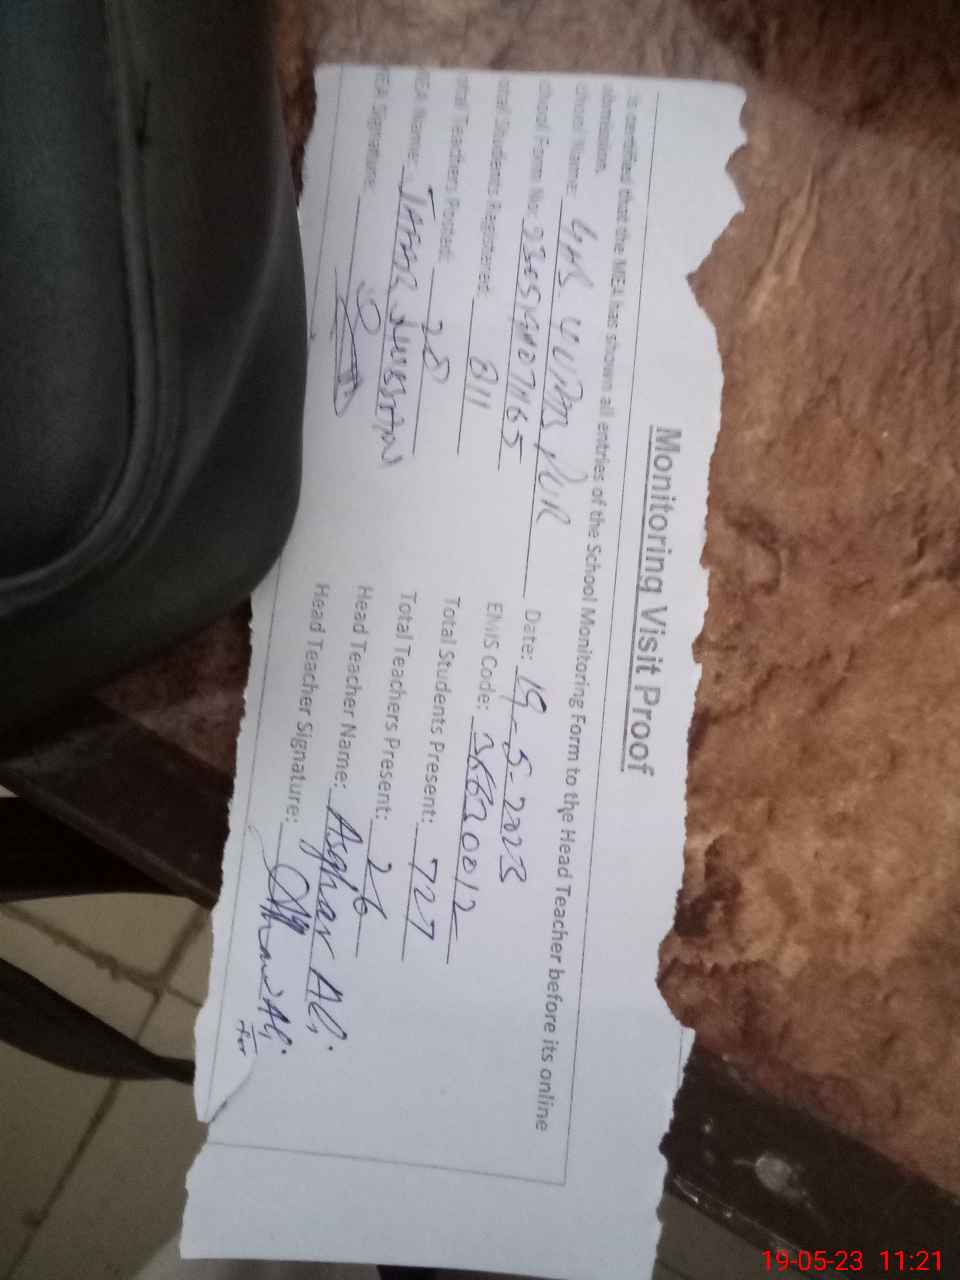 Monitoring Visit Proof
is certified that the MEA has shown all entries of the School Monitoring Form to the Head Teacher before its online
submission.
chool Name: GHS PUR Date: 19-5-2023
chool Form No: EMIS Code: 36620012
otal Students Registered: 811 Total Students Present: 727
otal Teachers Posted: 28 Total Teachers Present: 26
EA Name: Head Teacher Name: Asghar Ali
EA Signature: Head Teacher Signature:
19-05-23 11:21